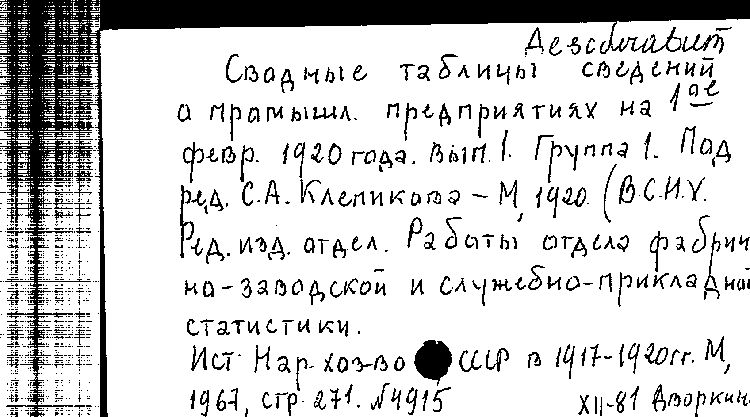 Дезабиавит
Сводные таблицы сведений
о промышл. предприятиях на 1ое
февр. 1920 года. Вып. 1. Группа 1. Под
ред. С.А. Клепикова – М, 1920. (В.С.Н.Х.
Ред. изд. отдел. Работы отдела фабрич
но-заводской и служебно-прикладной
статистики.
Ист. Нар. хоз-во СССР в 1917-1920гг. М,
1967, стр. 271. №4915 XII-81 Дворкин